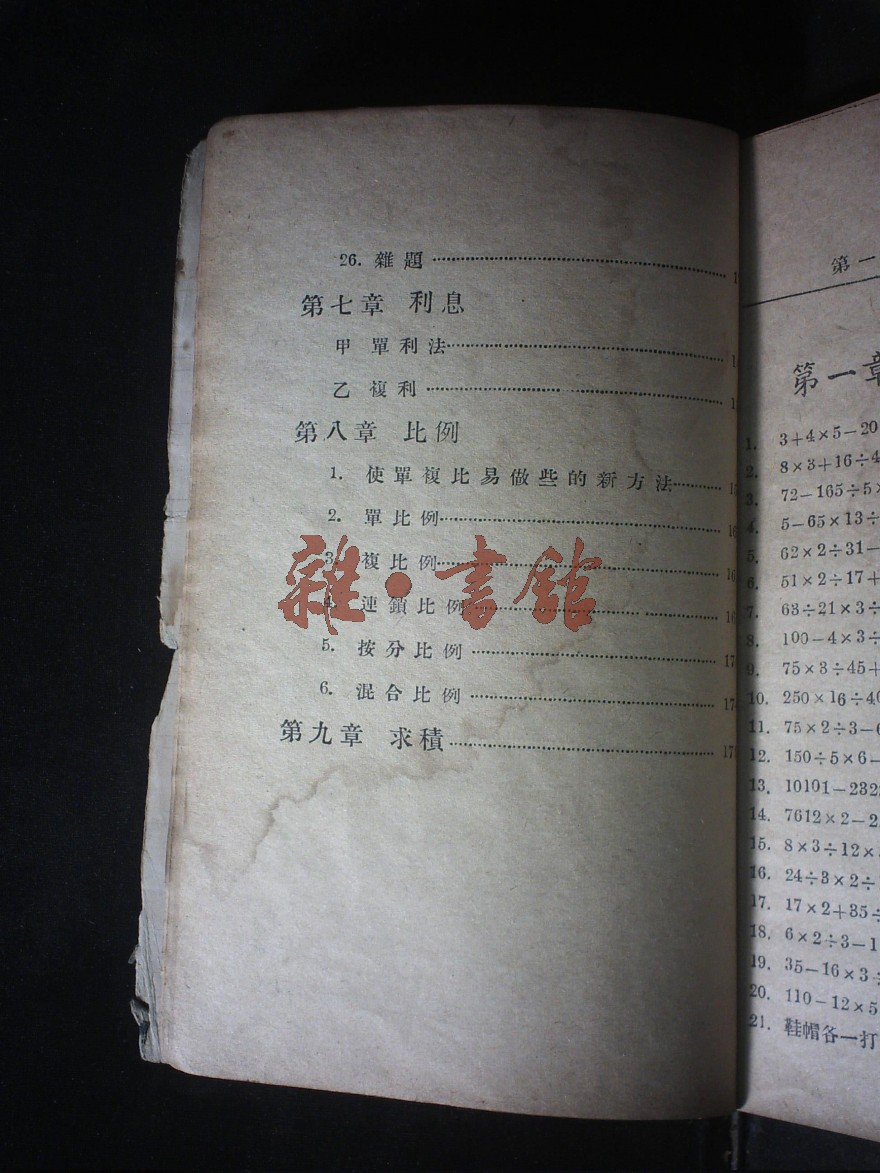 26. 雜題
第七章 利息
甲 單利法
乙 複利
第八章 比例
1. 使單複比易做些的新方法
2. 單比例
3. 複比例
4. 連鎖比例
5. 按分比例
6. 混合比例
第九章 求積
雜·書館
第一
第一章
1. 3+4×5−20
2. 8×3+16÷4
3. 72−165÷5×
4. 5−65×13÷
5. 62×2÷31−
6. 51×2÷17+
7. 63÷21×3÷
8. 100−4×3÷
9. 75×3÷45+
10. 250×16÷40
11. 75×2÷3−6
12. 150÷5×6−
13. 10101−232
14. 7612×2−2
15. 8×3÷12×
16. 24÷3×2÷
17. 17×2+35÷
18. 6×2÷3−1
19. 35−16×3÷
20. 110−12×5
21. 鞋帽各一打